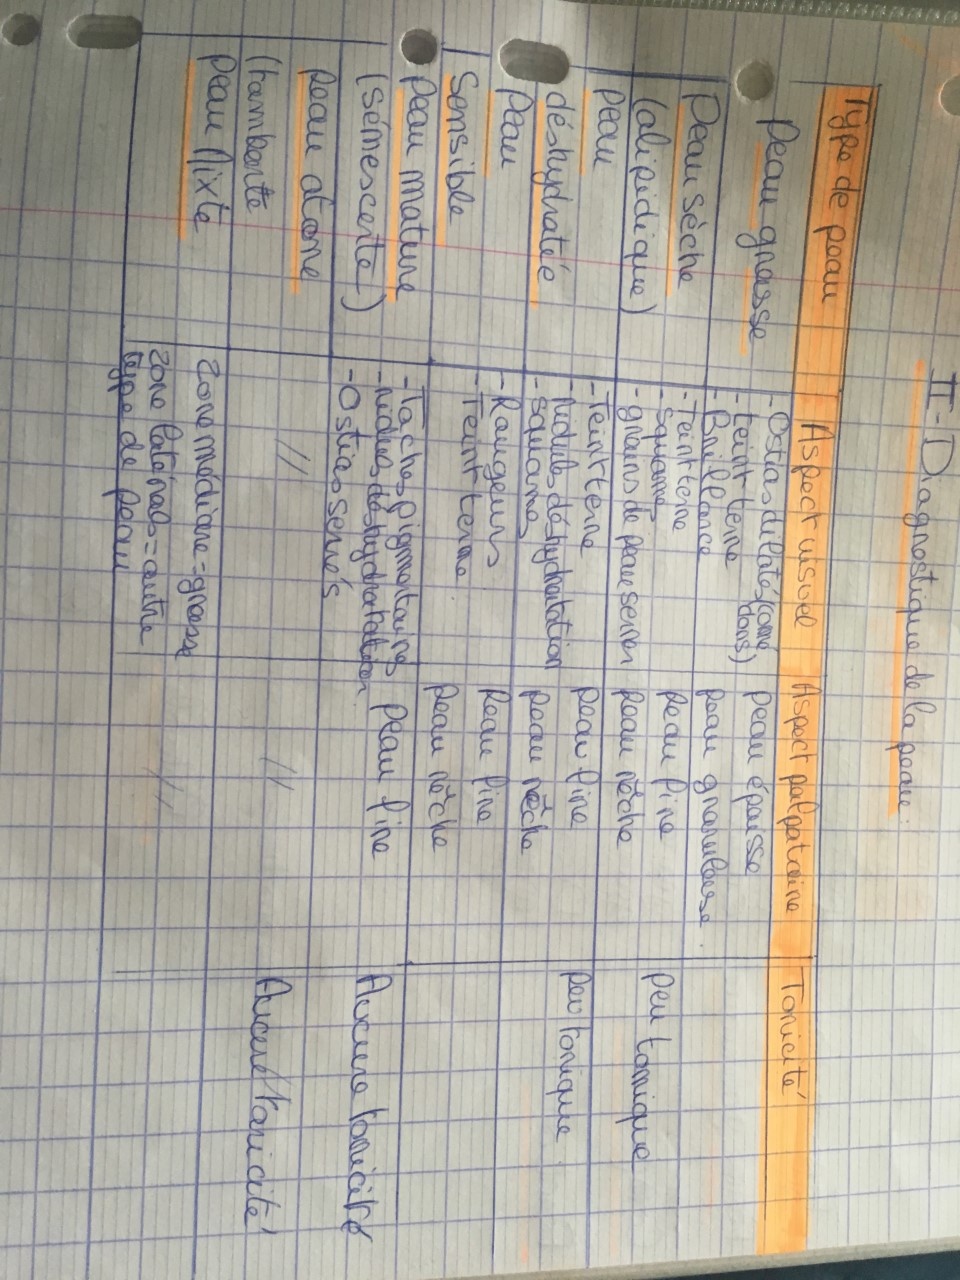 II - Diagnostique de la peau :
Type de peau
Aspect visuel
Aspect palpatoire
Tonicité
Peau grasse
- Ostias dilatés (comé
dons)
- teint terne
- Brillance
peau épaisse
peau granuleuse.
Peau sèche
(alipidique)
- Teint terne
- squame
- grains de peau serrer
peau fine
peau rêche
peu tonique
Peau
déshydratée
- Teint terne
- ridules déshydratation
- squame
peau fine
peau rêche
peu tonique
Peau
Sensible
- Rougeurs
- Teint terne
Peau fine
peau rêche
peau mature
(sémescente)
- Taches pigmentaires
- ridules déshydratation
- Ostias serrés
peau fine
Aucune tonicité
peau atone
(tombante
//
//
Aucune tonicité
peau Mixte
zone médiane = grasse
zone latérals = autre
type de peau
//